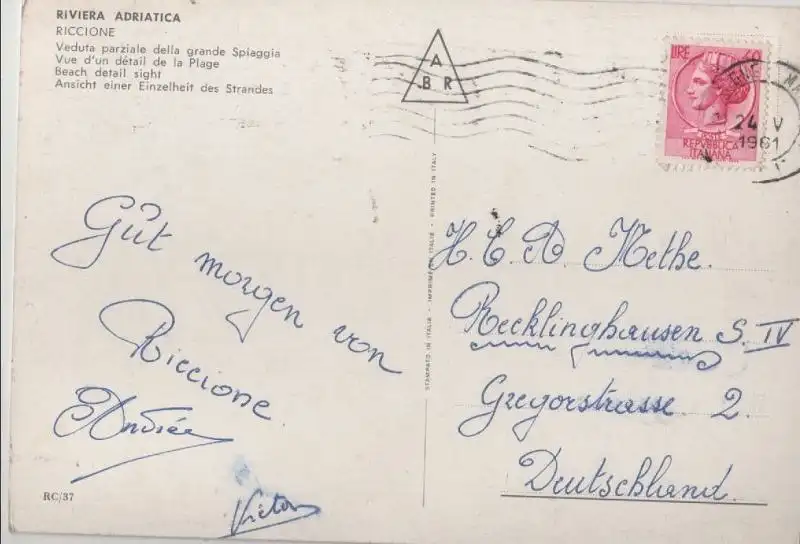 RIVIERA ADRIATICA
RICCIONE
Veduta parziale della grande Spiaggia
Vue d'un détail de la Plage
Beach detail sight
Ansicht einer Einzelheit des Strandes
A
B R
LIRE 60
POSTE
REPVBBLICA
ITALIANA
24 V
1961
Gût morgen von
Riccione.
Andrée
Victor
RC/37
STAMPATO IN ITALIE - IMPRIMÉ EN ITALIE - PRINTED IN ITALY
H.E.A. Nethe.
Recklinghausen S. IV
Gregorstrasse 2.
Deutschland.